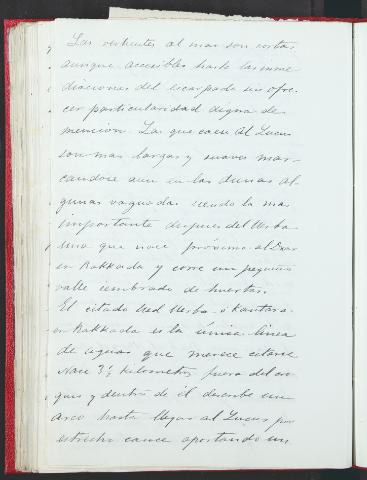 Las vertientes al mar son cortas
aunque accesibles hasta las inme
diaciones del escarpado sin ofre
cer particularidad digna de
mención. Las que caen al Lucus
son mas largas y suaves mar
candose aun en las dunas al
gunas vaguadas siendo la mas
importante despues del Uerba
una que nace próxima al Dxar
en Rakkada y corre un pequeño
valle sembrado de huertas.
El citado Ued Uerba ó Kantara-
en Rakkada es la única linea
de aguas que merece citarse
Nace 3½ kilometros fuera del cro
quis y dentro de él describe un
arco hasta llegar al Lucus por
estrecho cauce aportando un